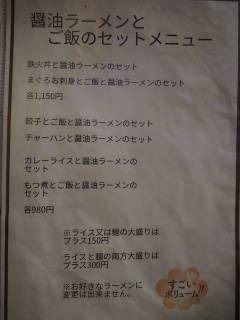 醤油ラーメンと
ご飯のセットメニュー
鉄火丼と醤油ラーメンのセット
まぐろお刺身とご飯と醤油ラーメンのセット
各1,150円
餃子とご飯と醤油ラーメンのセット
チャーハンと醤油ラーメンのセット
カレーライスと醤油ラーメンの
セット
もつ煮とご飯と醤油ラーメンの
セット
各980円
※ライス又は麺の大盛りは
プラス150円
ライスと麺の両方大盛りは
プラス300円
※お好きなラーメンに
変更は出来ません。
すごい
ボリューム!!